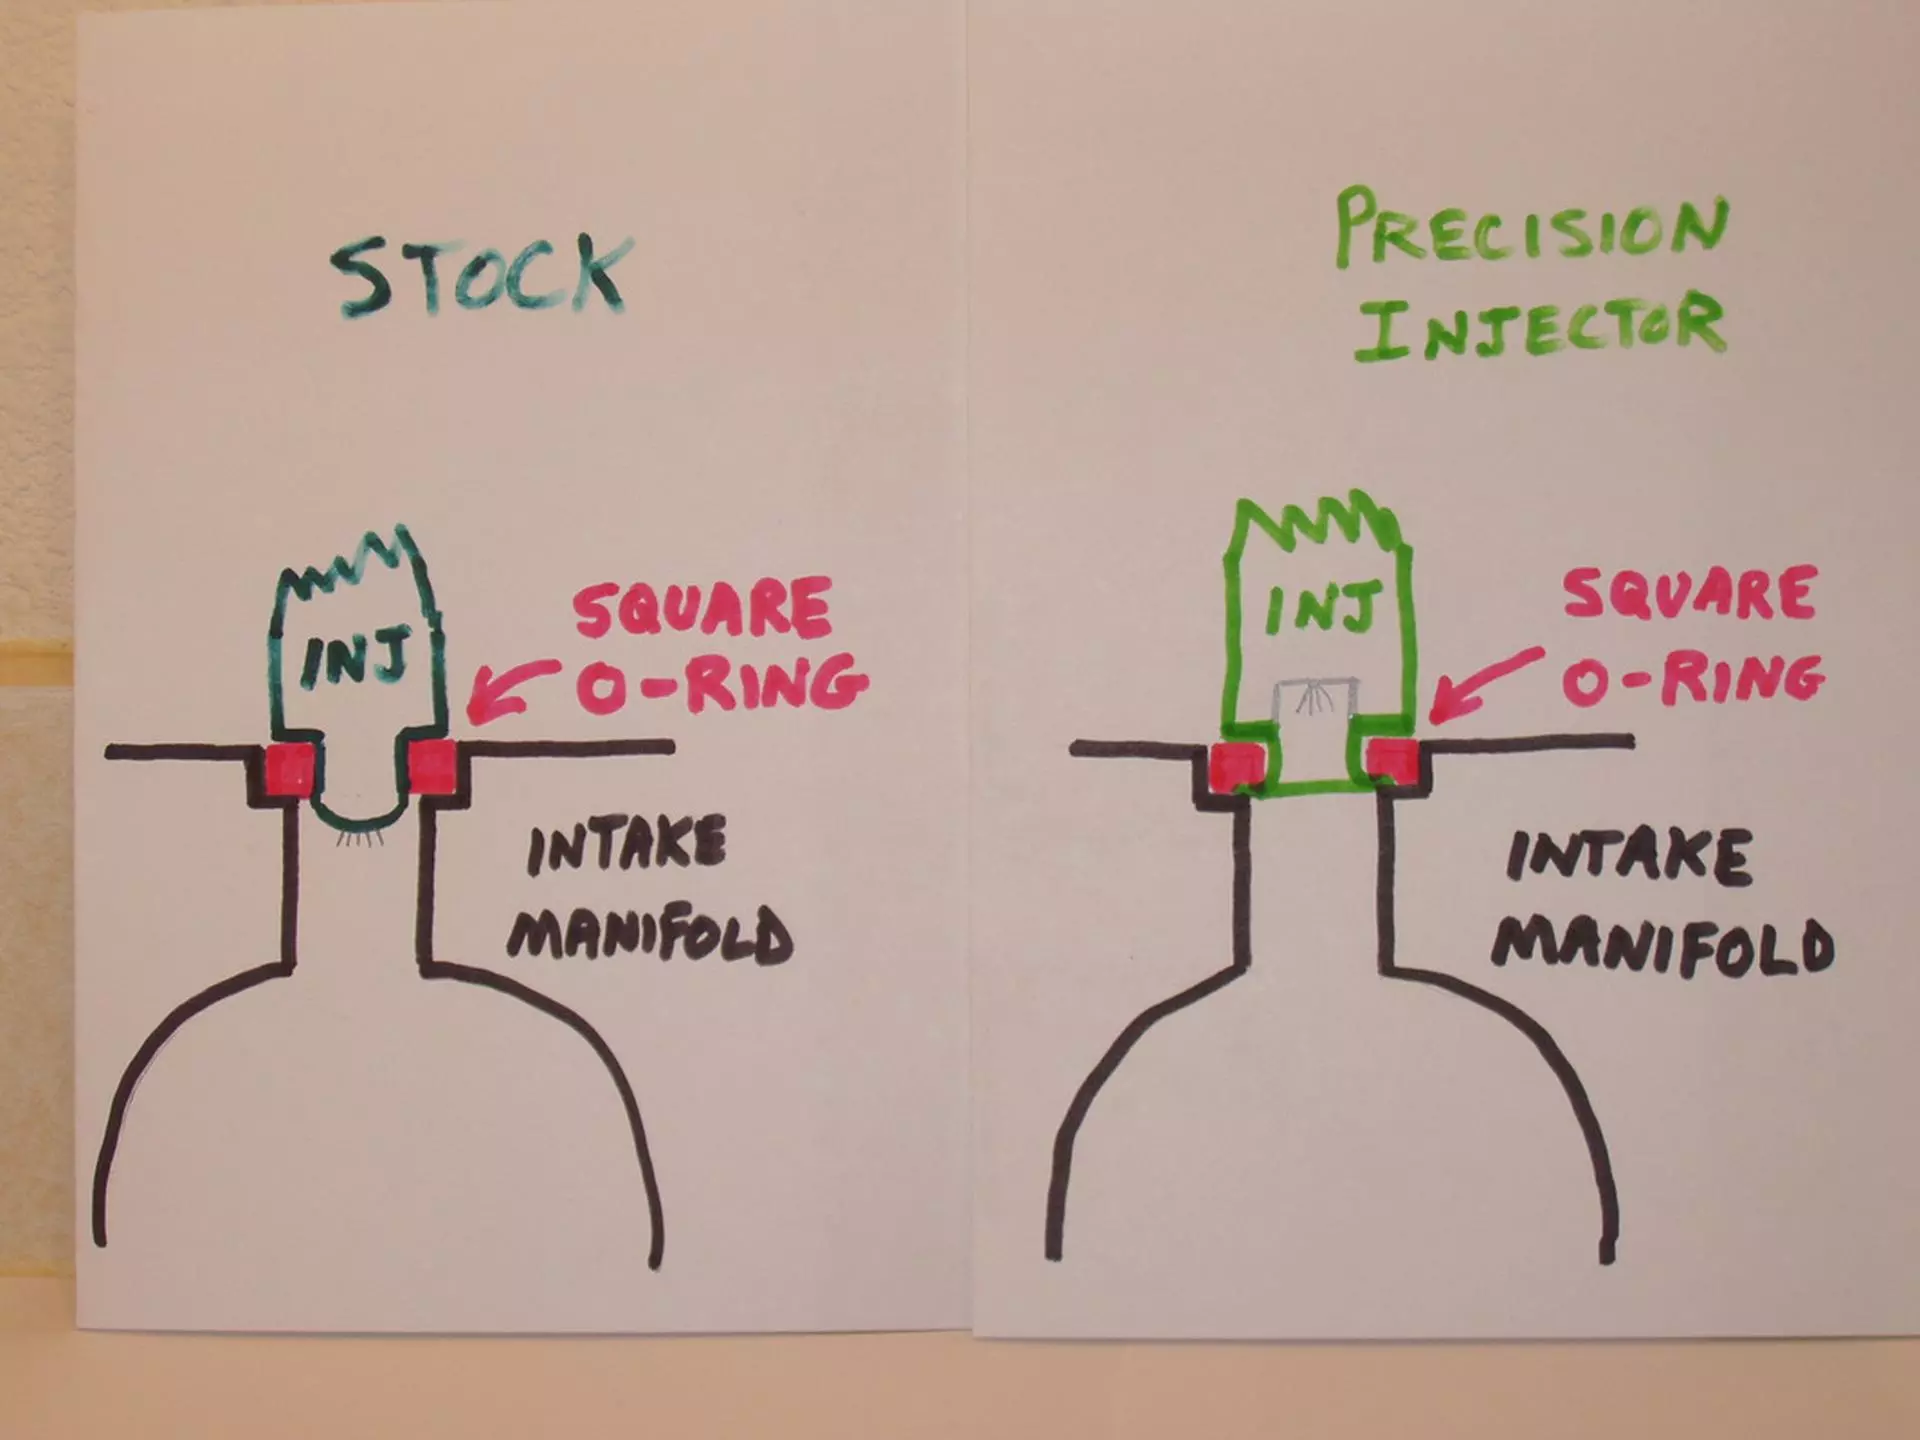 STOCK
INJ
SQUARE
O-RING
INTAKE
MANIFOLD
PRECISION
INJECTOR
INJ
SQUARE
O-RING
INTAKE
MANIFOLD